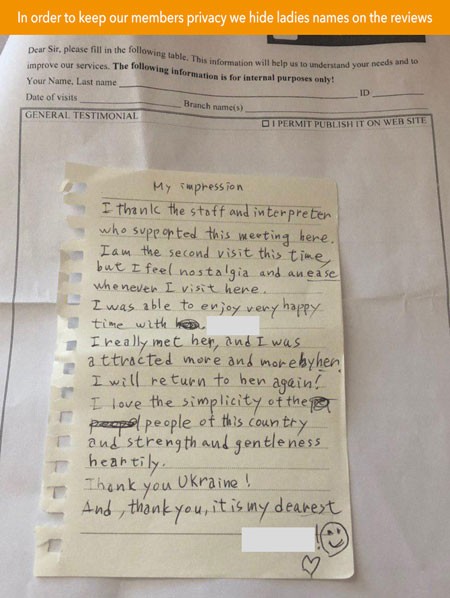 In order to keep our members privacy we hide ladies names on the reviews
Dear Sir, please fill in the following table. This information will help us to understand your needs and to
improve our services. The following information is for internal purposes only!
Your Name, Last name ID
Date of visits Branch name(s)
GENERAL TESTIMONIAL
I PERMIT PUBLISH IT ON WEB SITE
My impression
I thank the staff and interpreter
who supported this meeting here.
I am the second visit this time,
but I feel nostalgia and an ease
whenever I visit here.
I was able to enjoy very happy
time with
I really met her, and I was
attracted more and more by her.
I will return to her again!
I love the simplicity of the
people of this country
and strength and gentleness
heartily.
Thank you Ukraine!
And, thank you, it is my dearest
!